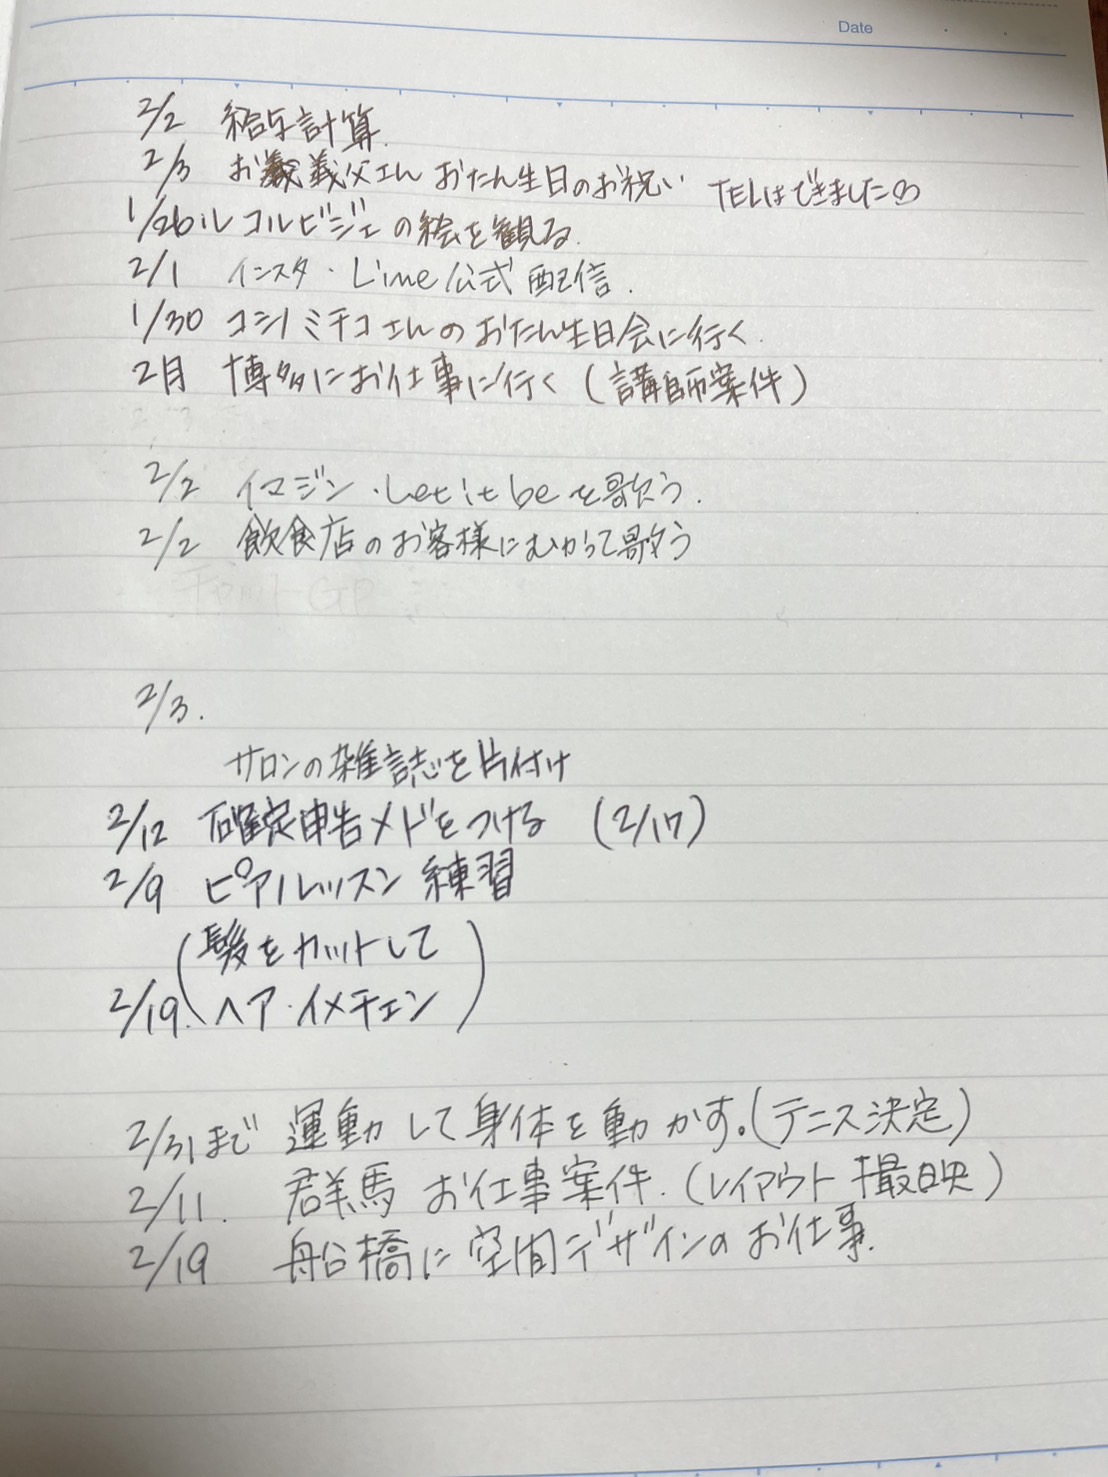 Date
2/2 給与計算.
2/3 お義父さん おたん生日のお祝い TELはできました♡
1/26 ル コルビジェの絵を観る.
2/1 インスタ・Line公式 配信.
1/30 コシノミチコさんのおたん生日会に行く.
2月 博多にお仕事に行く(講師案件)
2/2 イマジン・Let it beを歌う.
2/2 飲食店のお客様にむかって歌う
2/3.
サロンの雑誌を片付け
2/12 確定申告メドをつける (2/17)
2/9 ピアノレッスン 練習
(髪をカットして
2/19. ヘア・イメチェン)
2/31まで 運動して身体を動かす。(テニス決定)
2/11. 群馬 お仕事案件.(レイアウト撮映)
2/19 船橋に空間デザインのお仕事.